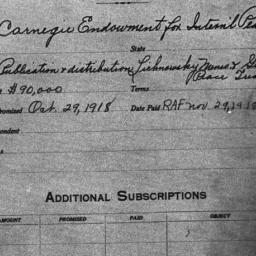 Carnegie Endowment for Internl Pea
State
Publication & distribution, Lichnowsky
Terms Peace
$90,000
omised Oct. 29, 1918 Date Paid RAF Nov. 29, 191
ondent
s
ADDITIONAL SUBSCRIPTIONS
AMOUNT PROMISED PAID OBJECT